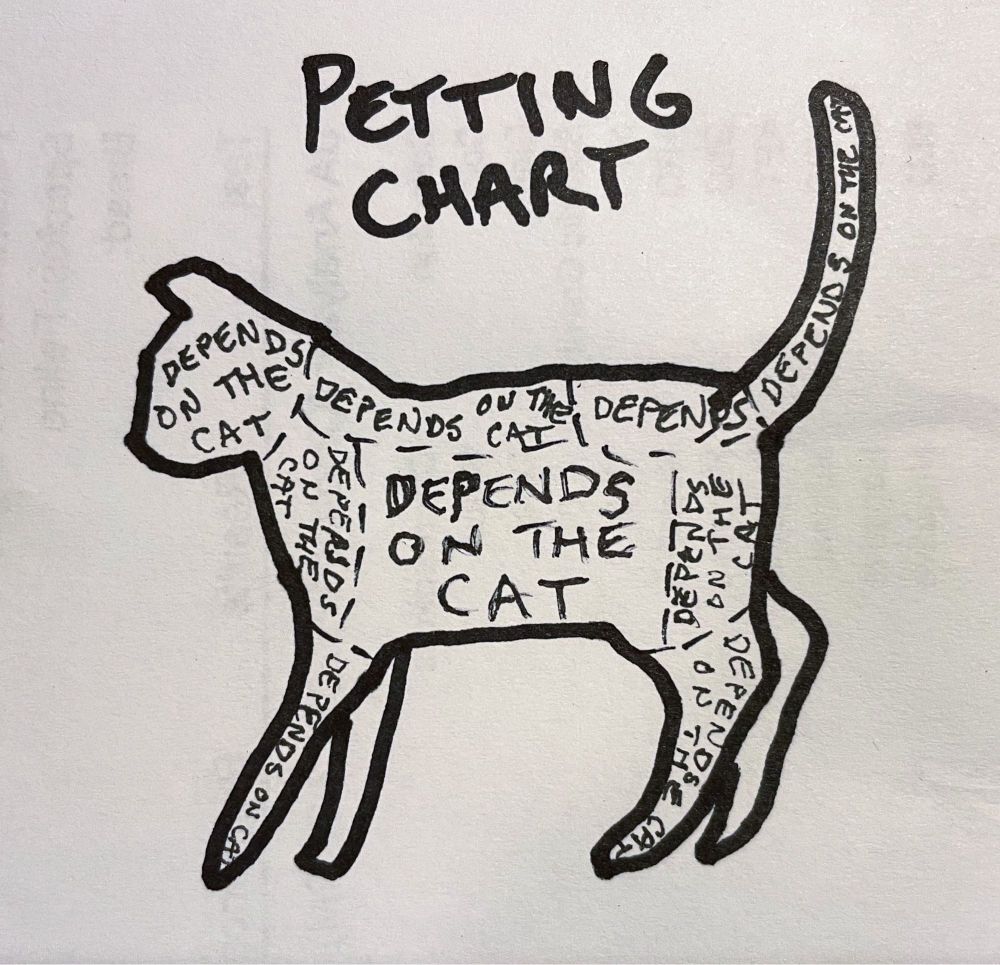 PETTING
CHART
DEPENDS
ON THE
CAT
DEPENDS ON THE
CAT
DEPENDS
DEPENDS ON THE CAT
DEPENDS
ON THE
CAT
DEPENDS
ON THE
CAT
DEPENDS
ON THE
CAT
DEPENDS ON CAT
DEPENDS
ON THE CAT